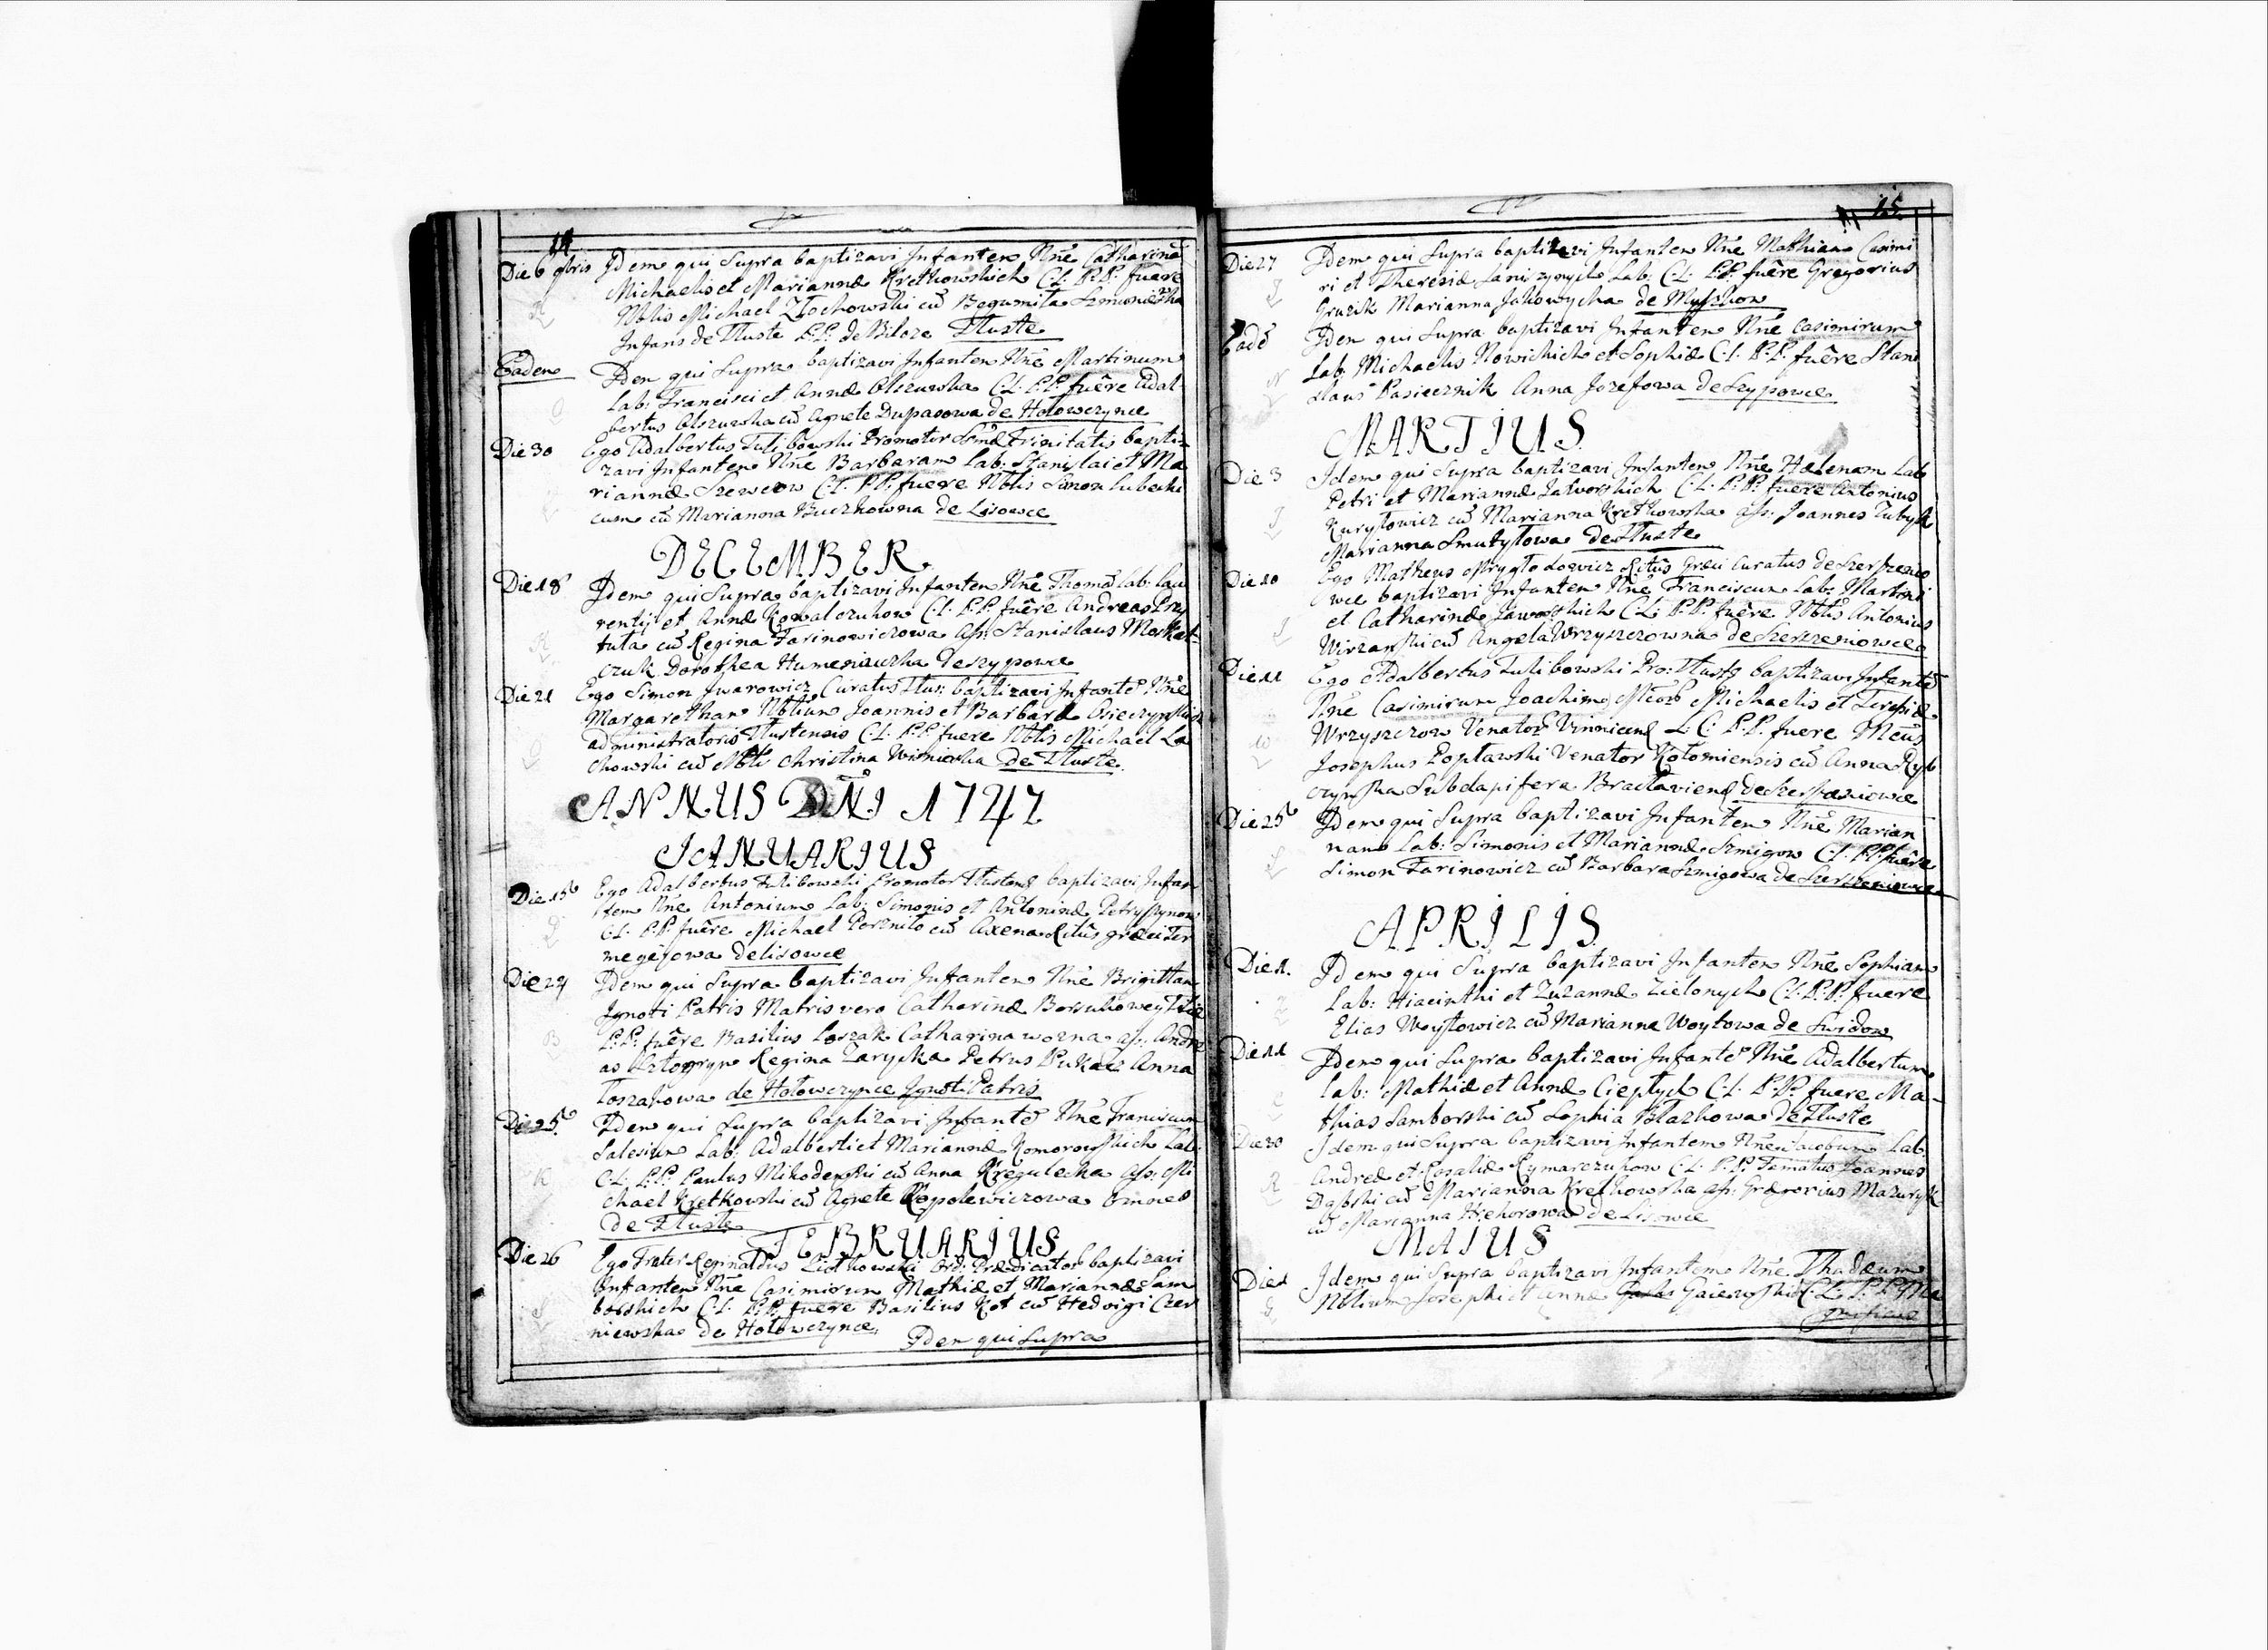 14
Die 6 9bris Idem qui Supra baptizavi Infantem Nñe Catharinã
Michaelis et Mariannæ Kretkowskich C: L: P.P: fuere
Nblis Michael Złochowski cũ Bogumiła
Infans de Tłuste P.P: de Bilcze Tłuste
Eadem Idem qui Supra baptizavi Infantem Nñe Martinum
Lab: Francisci et Annæ Olszuwka C: L: P.P. fuêre Adal-
bertus Olszuwka cũ Agnete Dupasowa de Hołowczynce
Die 30 Ego Adalbertus Tulibowski Promotor Smæ Trinitatis bapti-
zavi Infantem Nñe Barbaram Lab: Stanislai et Ma
riannæ Szewcow C: L: P.P: fuere Nblis Simon Lubecki
cum cũ Marianna Buczkowna de Lisowce
DECEMBER
Die 18 Idem qui Supra baptizavi Infantem Nñe Thomã Lab: Lau
rentij et Annæ Kowalczukow C: L: P.P. fuêre Andreas Pry
tuła cũ Regina Farinowiczowa Ass: Stanislaus Moskal-
czuk Dorothea Humeniuczka de Szypowce
Die 21 Ego Simon Iwarowicz Curatus Tłus: baptizavi Infantẽ Nñe
Margaretham Nblium Joannis et Barbaræ
administratoris Tłustensis C: L: P.P. fuere Nblis Michael La
chowski cũ Nbli Christina Winnicka de Tłuste
ANNUS DÑI 1747
JANUARIUS
Die 15 Ego Adalbertus Tulibowski Promotor Tłustens baptizavi Infan
tem Nñe Antonium Lab: Simonis et Antoninæ
C: L: P.P. fuêre Michael cũ Axena Ritûs græci
de Lisowce
Die 24 Idem qui Supra baptizavi Infantem Nñe Brigittam
Ignoti Patris Matris vero Catharinæ
P.P: fuêre Basilius Loszak Catharina wozna ass: Andre
as Regina Zarycka Petrus Anna
Toszakowa de Hołowczynce Ignoti Patris
Die 25 Idem qui Supra baptizavi Infantẽ Nñe Franciscum
Salesium Lab: Adalberti et Mariannæ Komorowskich Lab:
C: L: P.P: Paulus Mikodenski cũ Anna Kregulecka Ass: Mi
chael Kretkowski cũ Agnete Kopolewiczowa omnes
de Tłuste
FEBRUARIUS
Die 26 Ego Frater Reginaldus Ord: Prædicator baptizavi
Infantem Nñe Casimirum Mathiæ et Mariannæ Sam
borskich C: L: P.P. fuere Basilius Kot cũ Hedvigi Czer
niewska de Hołowczynce
Idem qui Supra
15
Die 27 Idem qui Supra baptizavi Infantem Nñe Mathiam Casimi
ri et Theresiæ Lab: C: L: P.P. fuêre Gregorius
Gruzik Marianna Jakowycha de Myszkow
Eadẽ Idem qui Supra baptizavi Infantem Nñe Casimirum
Lab: Michaelis Nowickich et Sophiæ C: L: P.P. fuêre Stani
slaus Pasiecznik Anna Jozefowa de Szypowce
MARTIUS
Die 3 Idem qui Supra baptizavi Infantem Nñe Helenam Lab
Petri et Mariannæ Jaworskich C: L: P.P: fuere Antonius
Kuryłowicz cũ Marianna Kretkowska ass: Joannes
Marianna Smutyłowa de Tłuste
Die 10 Ego Matheus Ritûs Græci Curatus de Szerszenio
wce baptizavi Infantem Nñe Franciscum Lab: Martini
et Catharinæ Jaworskich C: L: P.P. fuêre Nblis Antonius
cũ Angela Wrzyszczowna de Szerszeniowce
Die 11 Ego Adalbertus Tulibowski Pro: Tłusts baptizavi Infantẽ
Nñe Casimirum Joachim Michaelis et Teresiæ
Wrzyszczow Venator L: C: P.P. fuere
Josephus Popławski Venator Kołomiensis cũ Anna Ryb
czynska Subdapifera Bracłaviens de Szerszeniowce
Die 25 Idem qui Supra baptizavi Infantem Nñe Marian
nam Lab: Simonis et Mariannæ Szmigow C: L: P.P. fuêre
Simon Farinowicz cũ Barbara Szmigowa de Szerszeniowce
APRILIS
Die 1. Idem qui Supra baptizavi Infantem Nñe Sophiam
Lab: Hiacinthi et Zuzannæ Zielonych C: L: P.P. fuere
Elias Woytowicz cũ Marianna Woytowa de Swidow
Die 11 Idem qui Supra baptizavi Infantẽ Nñe Adalbertum
Lab: Mathiæ et Annæ Ciepłych C: L: P.P. fuere Ma-
thias Samborski cũ Sophia Blazkowa de Tłuste
Die 30 Idem qui Supra baptizavi Infantem Nñe Jacobum Lab:
Andreæ et Rosaliæ Rymarczukow C: L: P.P. Joannes
Dąbski cũ Marianna Kretkowska ass: Gregorius Mazuryk
cũ Marianna Hichorowa de Lisowce
MAIUS
Die 1 Idem qui Supra baptizavi Infantem Nñe Thadæum
Nblium Josephi et Annæ Gaiewskich C: L: P.P. Ma